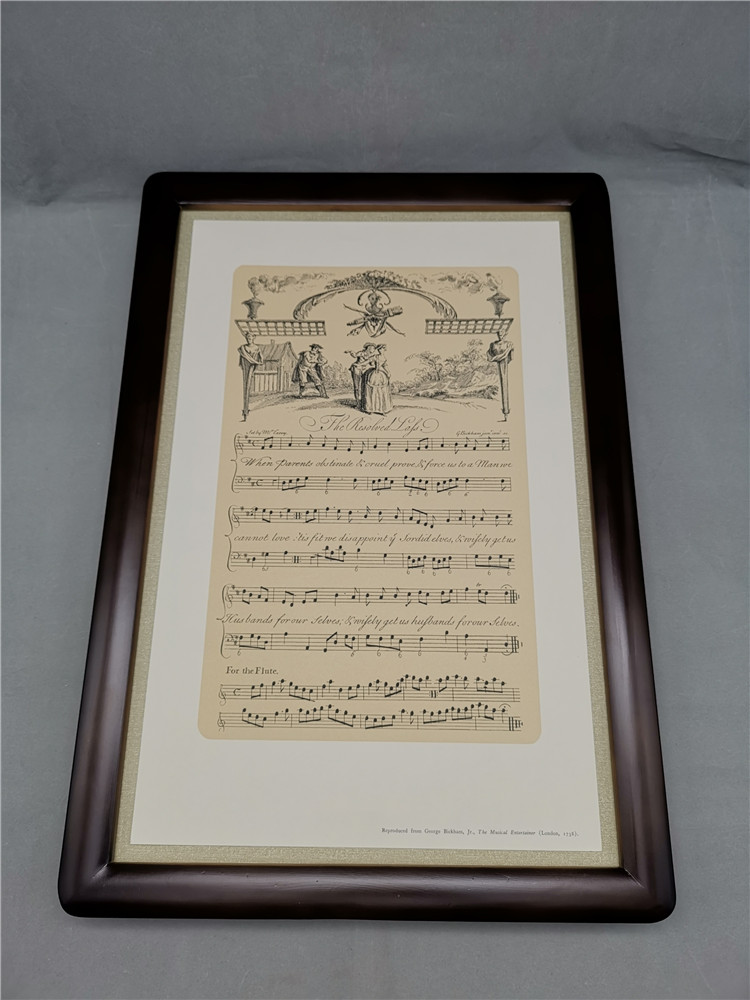 The Resolved Lass.
Set by Mr
When Parents obstinate & cruel prove, & force us to a Man we
cannot love 'tis fit we disappoint ÿ Sordid elves, & wisely get us
Husbands for our Selves; & wisely get us husbands for our Selves.
For the Flute.
Reproduced from George Bickham, Jr., The Musical Entertainer (London, 1736).